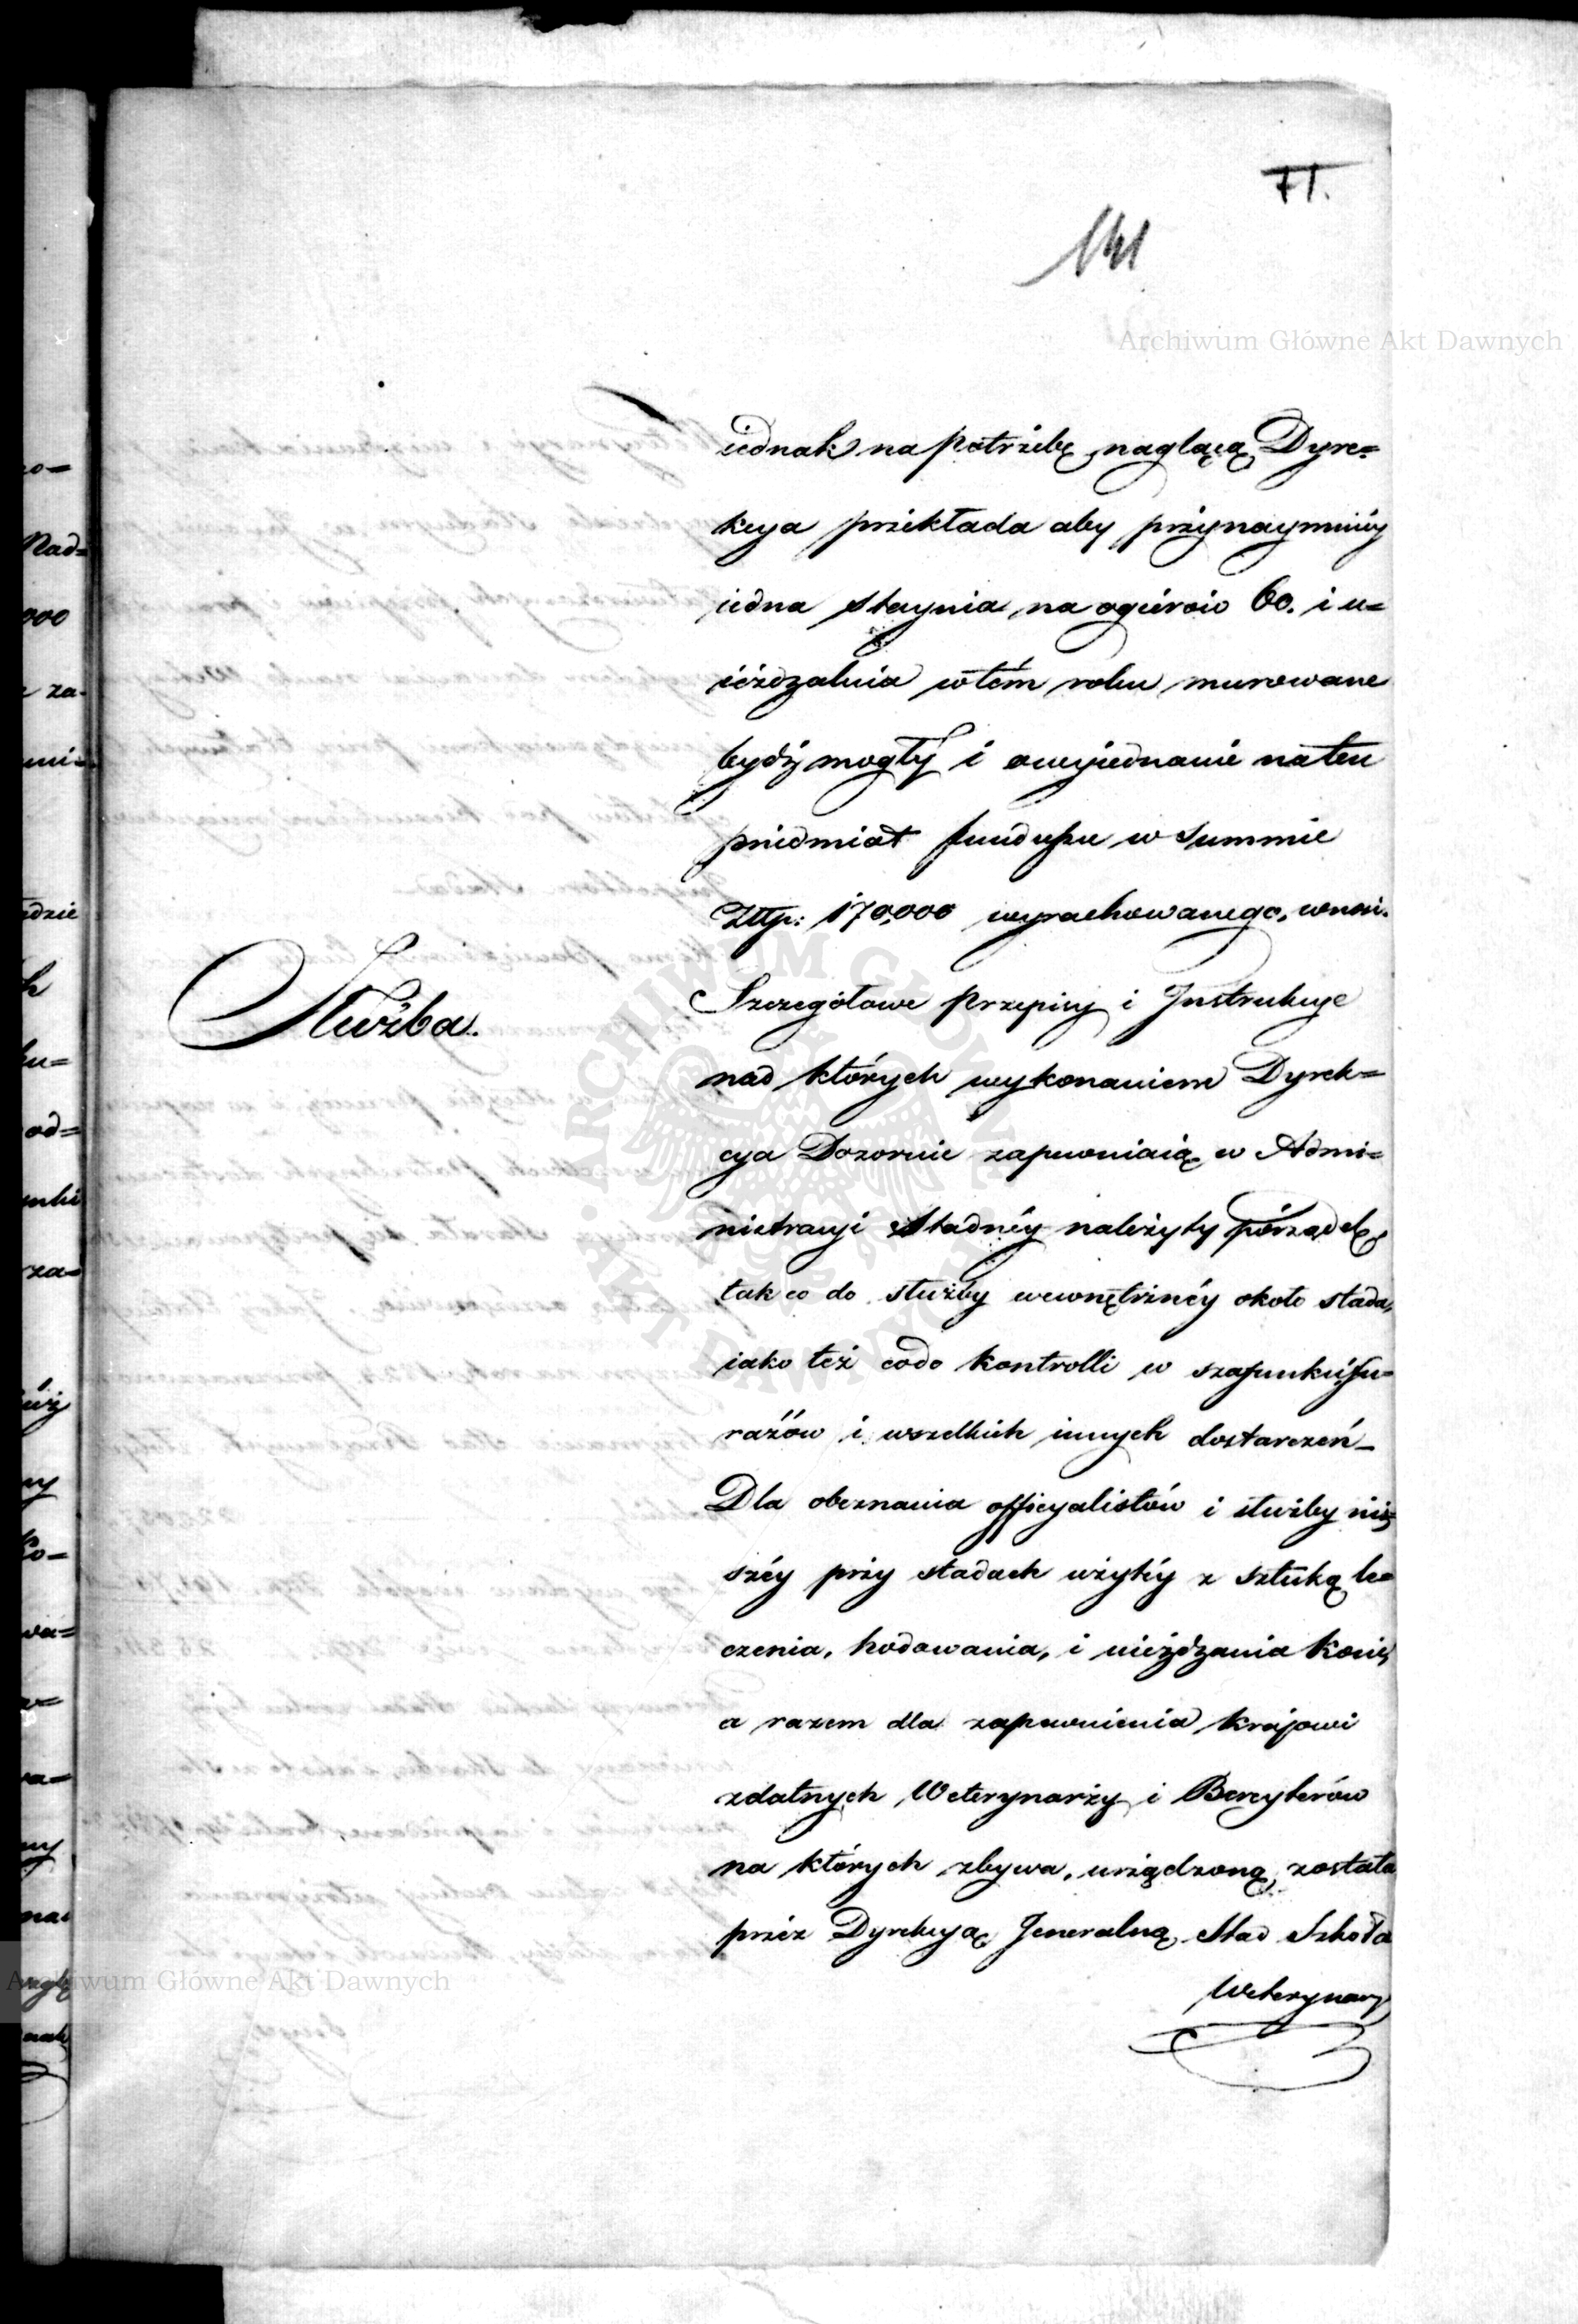 71.
141
Archiwum Główne Akt Dawnych
iednak na potrzebę naglącą Dyre=
kcya przekłada aby przynaymniéy
iedna staynia na ogierów 60. i u=
ieżdzalnia w tém roku murowane
bydź mogły i o wyiednanie na ten
przedmiot funduszu w summie
Złtp: 170,000 wyrachowanego, wnosi.
Służba.
Szczegółowe przepisy i Instrukcye
nad których wykonaniem Dyrek=
cya Dozoruie zapewniaią w Admi=
nistracyi Stadnéy należyty pórządek,
tak co do służby wewnętrznéy około stada,
iako też co do kontrolli w szafunku fu=
rażów i wszelkich innych dostarczeń_
Dla obeznania officyalistów i służby niż=
széy przy stadach użytéy z sztuką le=
czenia, hodowania, i uieżdzania koni,
a razem dla zapewnienia krajowi
zdatnych Weterynarzy i Bereyterów
na których zbywa, urządzoną została
przez Dyrekcyą Jeneralną Stad Szkoła
Weterynary
ARCHIWUM GŁÓWNE AKT DAWNYCH
Archiwum Główne Akt Dawnych